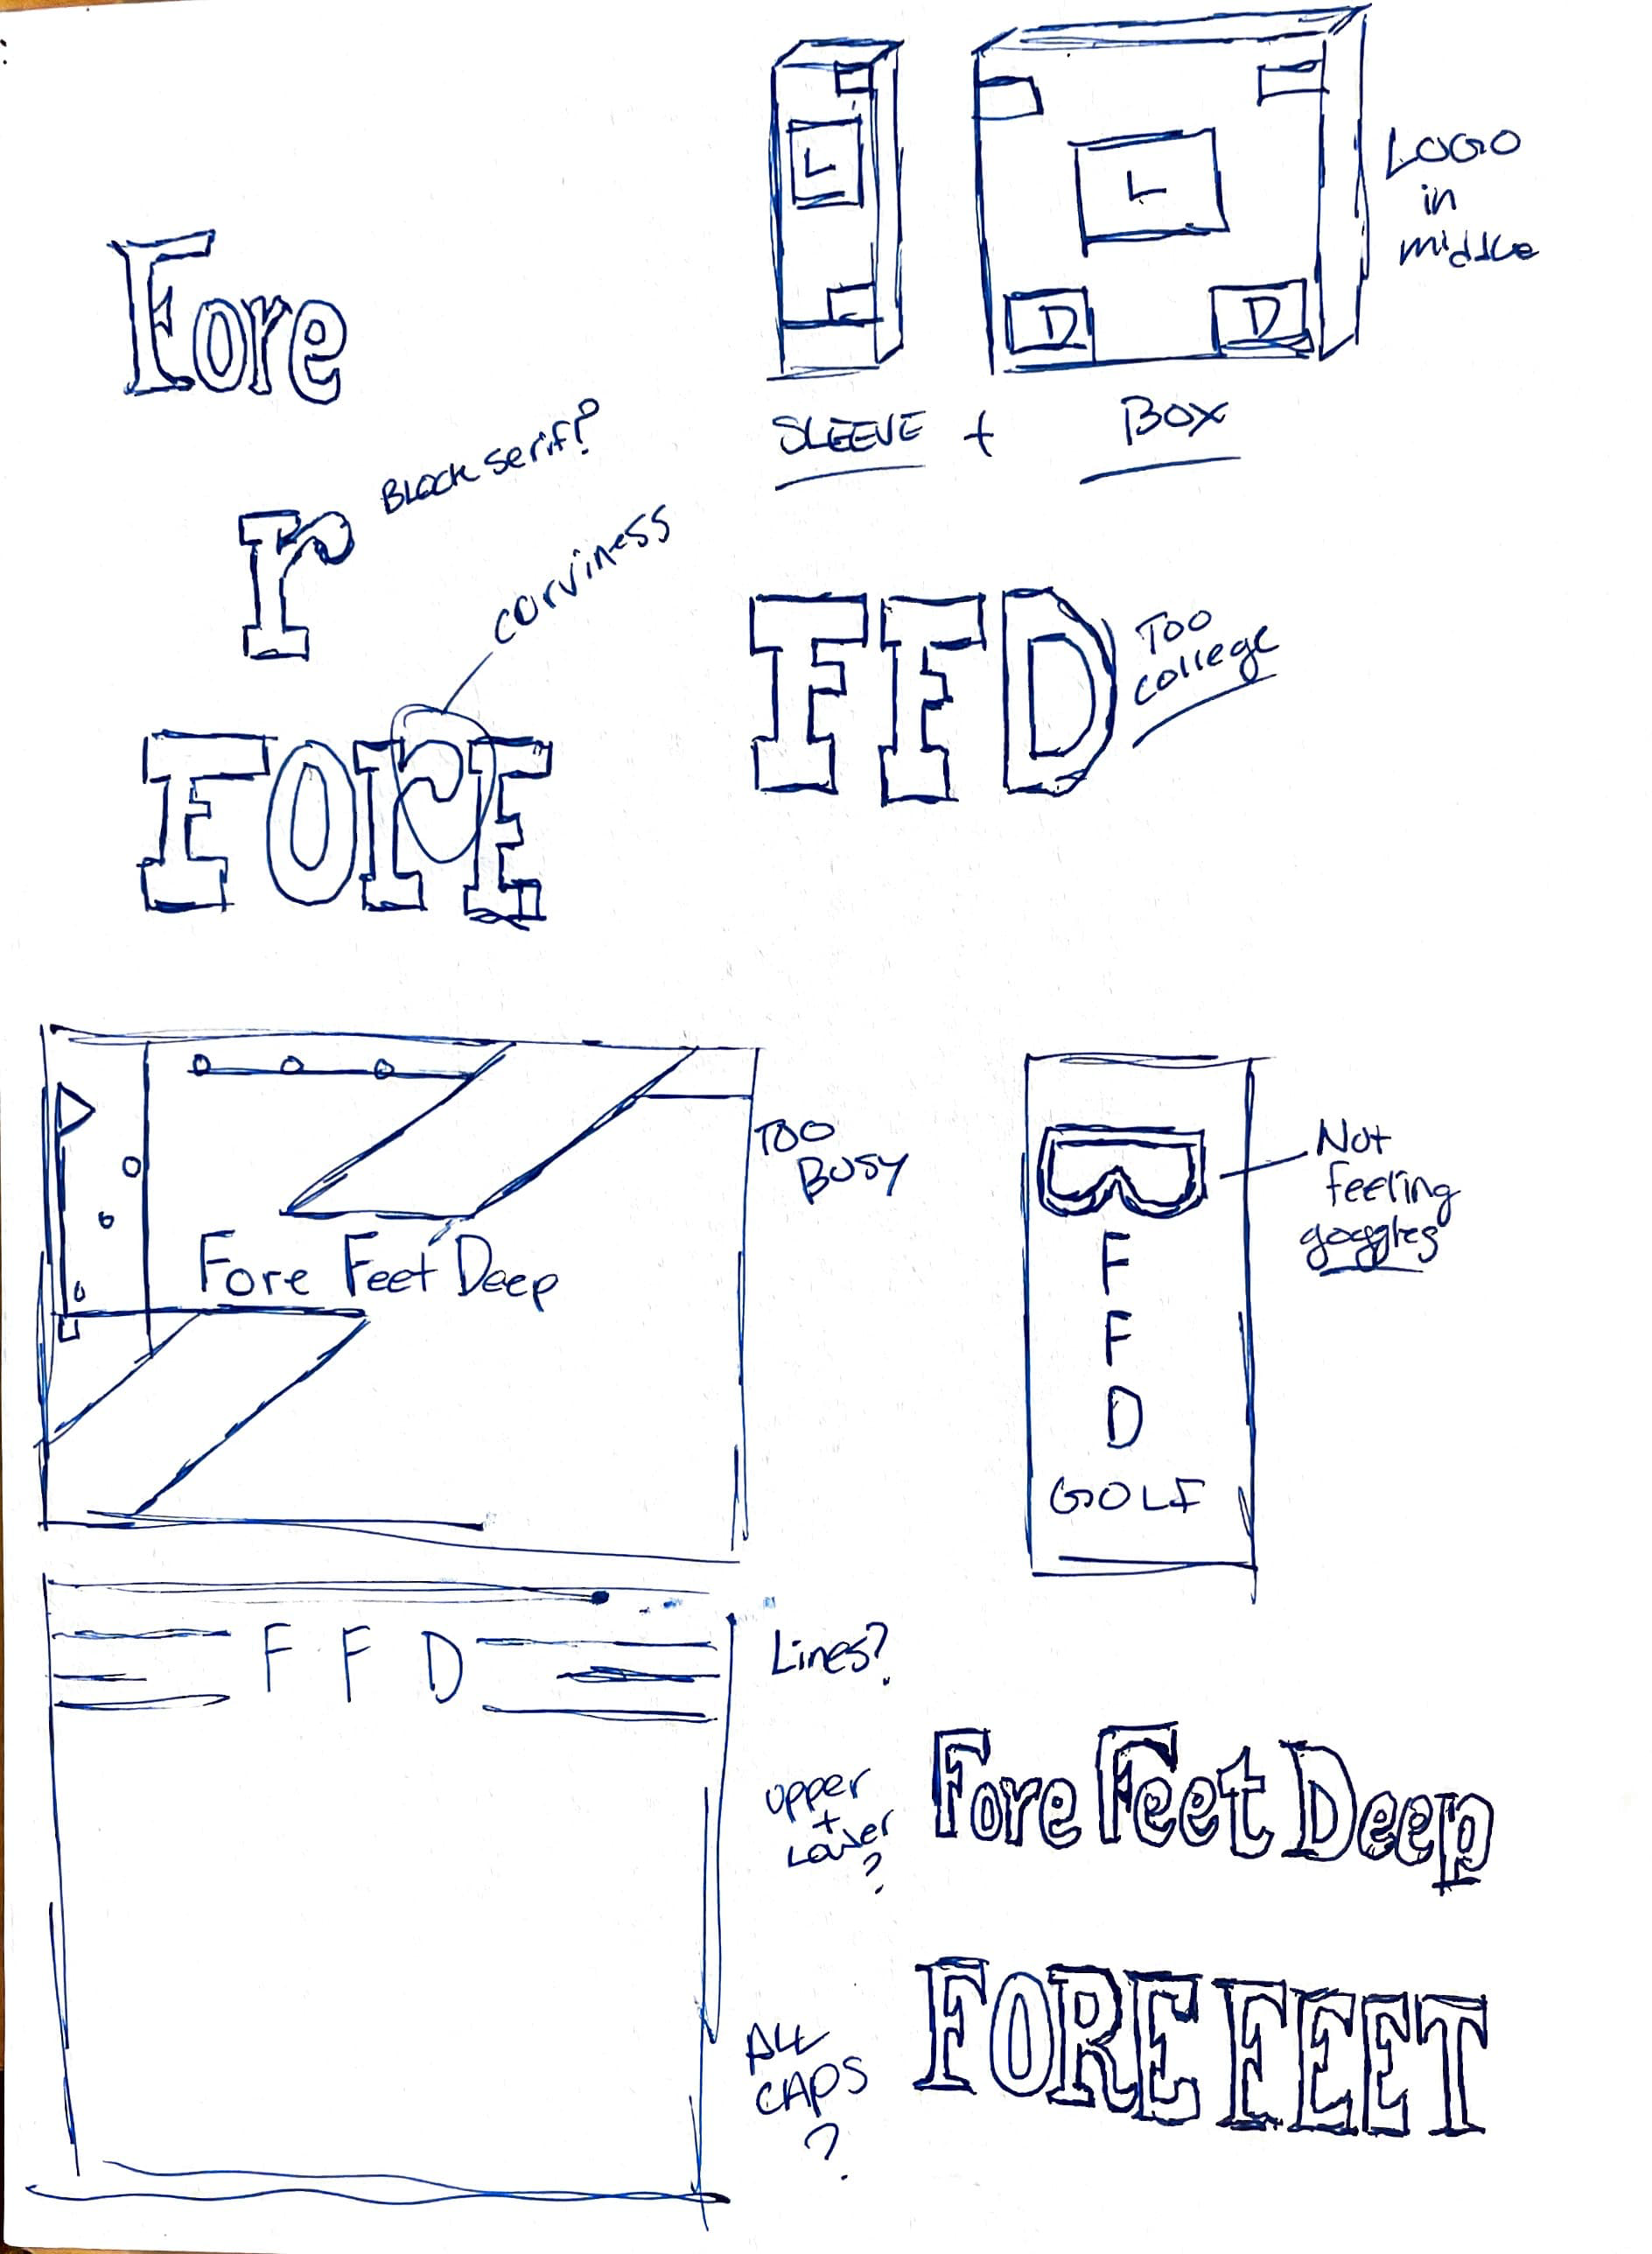 L
L
LOGO
in
middle
D
D
SLEEVE + BOX
Fore
Block serif?
r
curviness
FORE
FFD
Too
college
Fore Feet Deep
TOO
BUSY
F
F
D
GOLF
Not
feeling
goggles
F F D
Lines?
upper
+
Lower
?
Fore Feet Deep
ALL
CAPS
?
FORE FEET